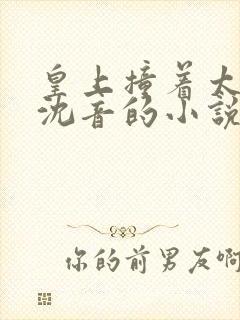 皇上撞着太
沈音的小説
你的前男友啊